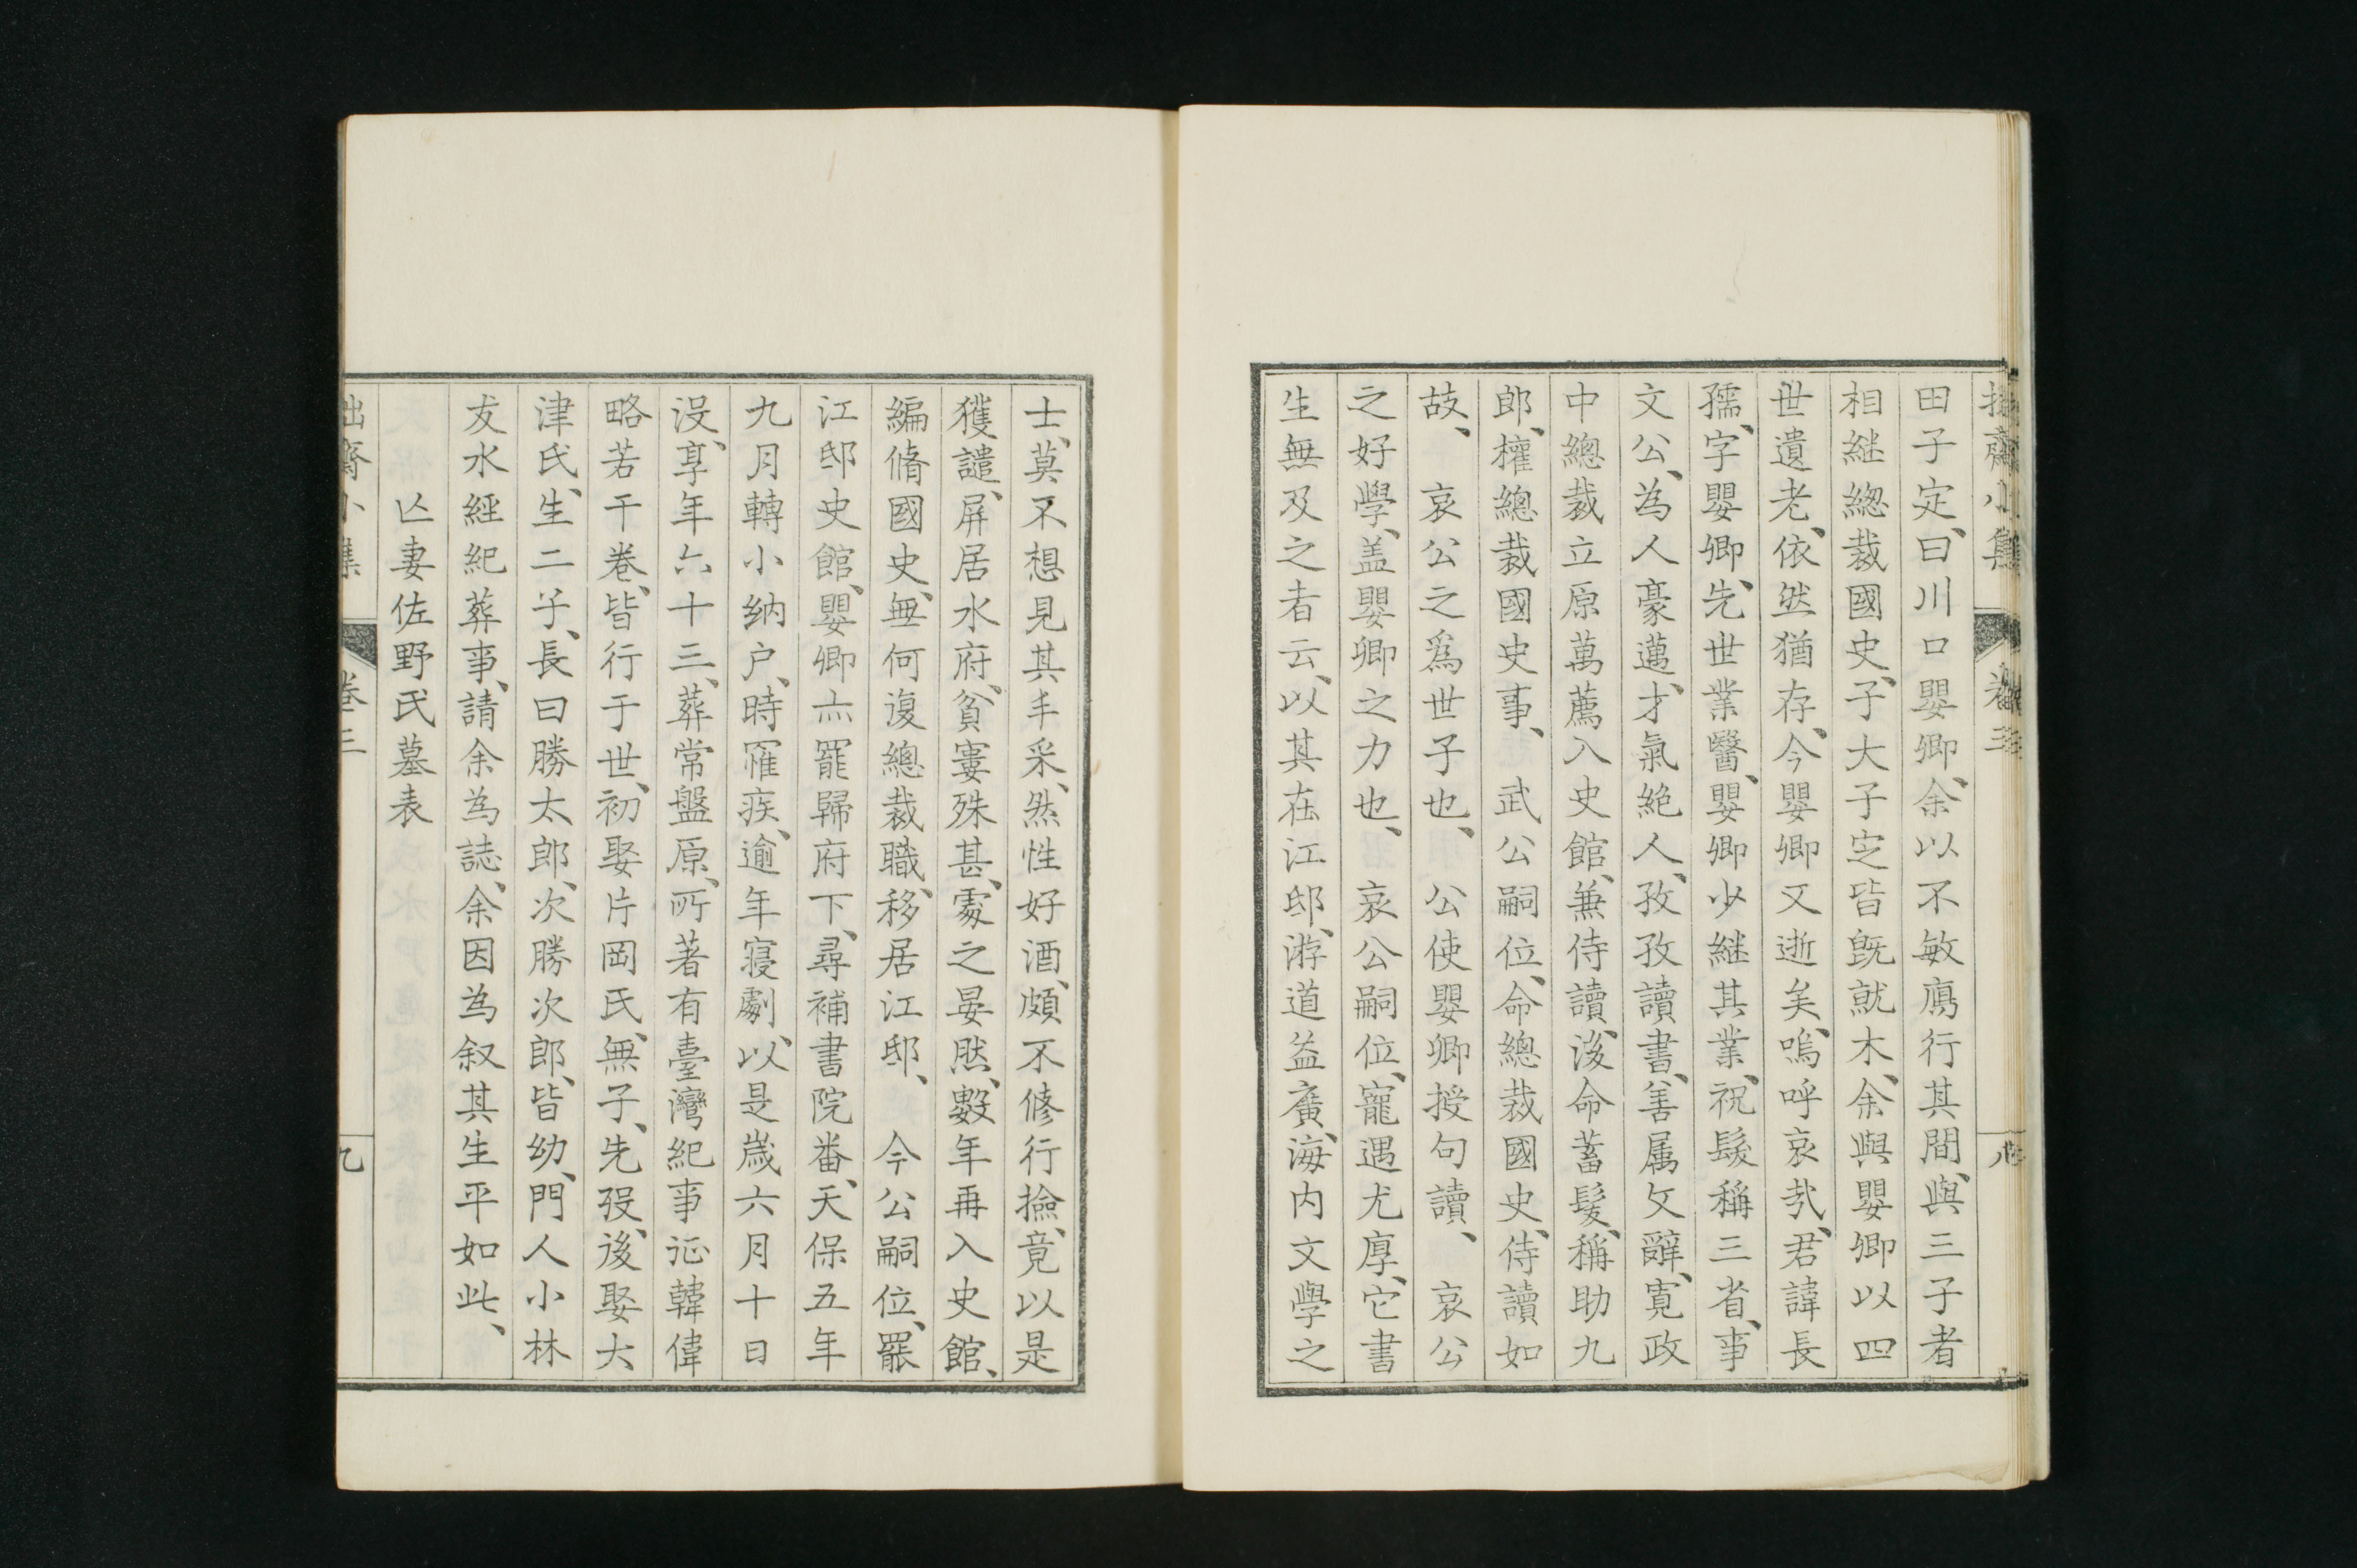 田子定、曰川口嬰卿、余以不敏鴈行其間、與三子者
相継總裁國史、子大子定皆既就木、余與嬰卿以四
世遺老、依然猶存、今嬰卿又逝矣、嗚呼哀哉、君諱長
孺、字嬰卿、先世業醫、嬰卿少継其業、祝髮稱三省、事
文公、為人豪邁、才氣絶人、孜孜讀書、善属文辭、寛政
中總裁立原萬薦入史館、兼侍讀、後命蓄髮、稱助九
郎、權總裁國史事、武公嗣位、命總裁國史、侍讀如
故、哀公之爲世子也、公使嬰卿授句讀、哀公
之好學、盖嬰卿之力也、哀公嗣位、寵遇尤厚、它書
生無及之者云、以其在江邸、游道益廣、海内文學之
士、莫不想見其丰采、然性好酒、頗不修行撿、竟以是
獲譴、屏居水府、貧窶殊甚、處之晏然、數年再入史館、
編脩國史、無何復總裁職、移居江邸、今公嗣位、罷
江邸史館、嬰卿亦罷歸府下、尋補書院番、天保五年
九月轉小納户、時罹疾、逾年寝劇、以是歳六月十日
没、享年六十三、葬常盤原、所著有臺灣紀事征韓偉
略若干卷、皆行于世、初娶片岡氏、無子、先歿、後娶大
津氏、生二子、長曰勝太郎、次勝次郎、皆幼、門人小林
友水經紀葬事、請余為誌、余因為叙其生平如此、
亡妻佐野氏墓表
拙齋小集 卷三 九